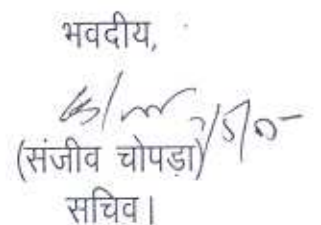 भवदीय,
(संजीव चोपड़ा)
सचिव।